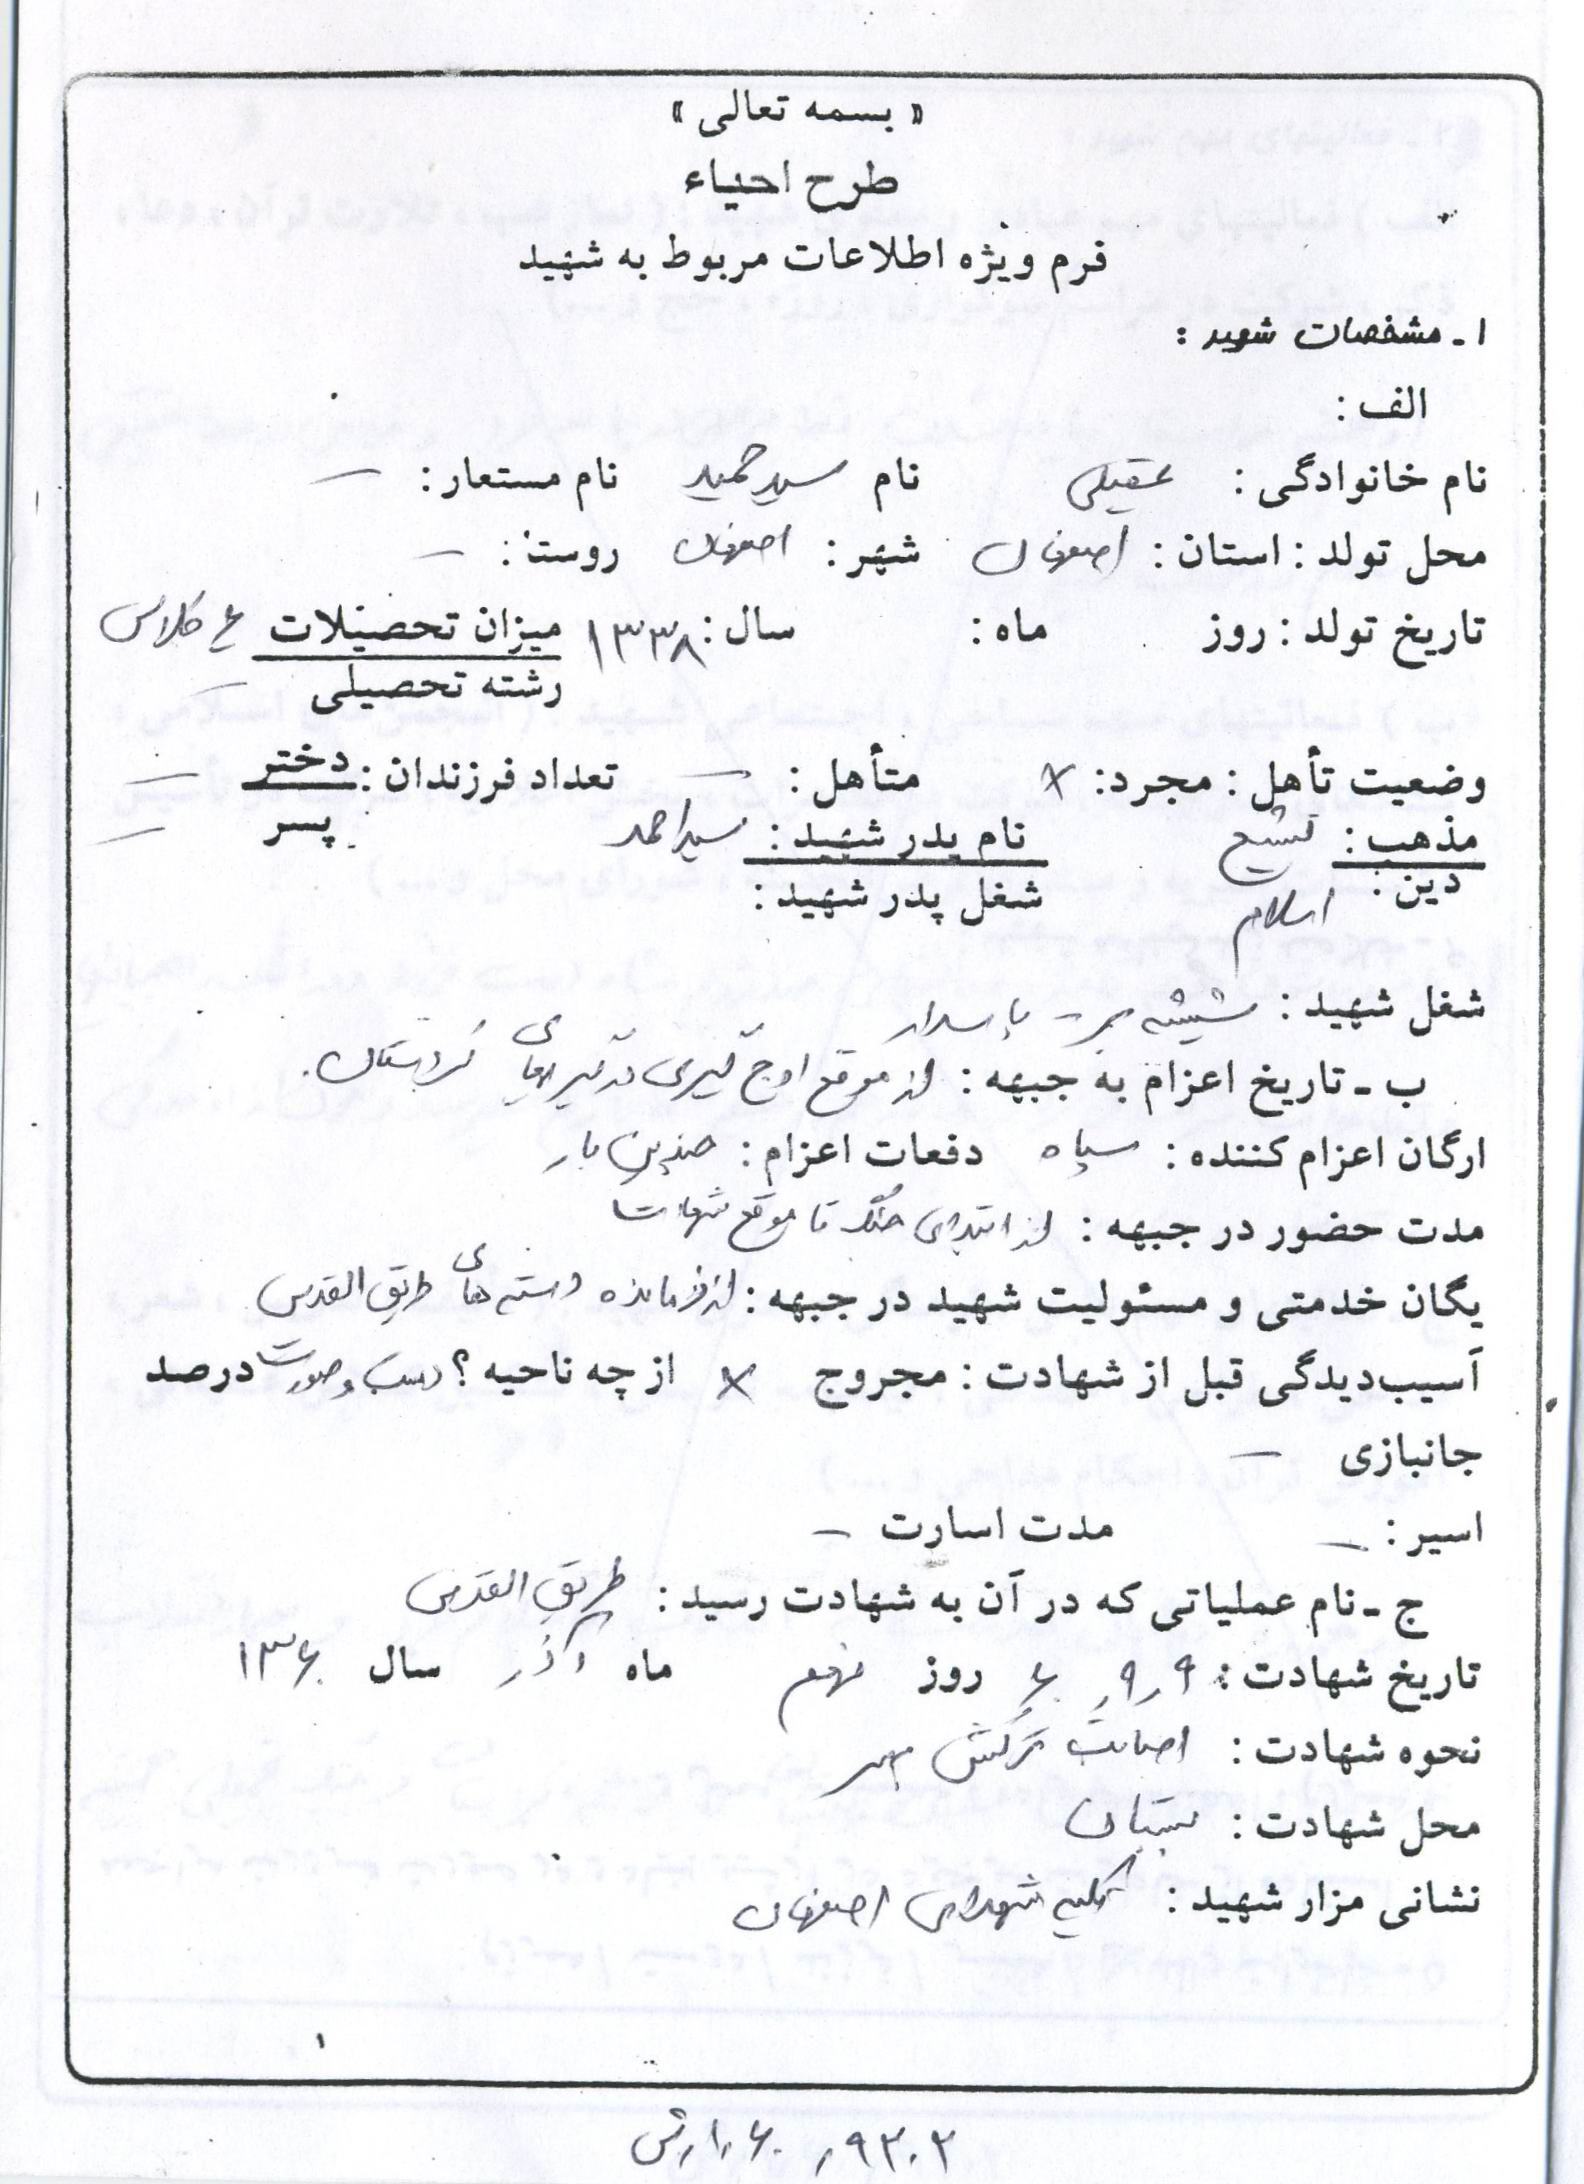 « بسمه تعالی »
طرح احیاء
فرم ویژه اطلاعات مربوط به شهید
۱ـ مشخصات شهید :
الف :
نام خانوادگی : عقیلی نام سید حمید نام مستعار : —
محل تولد : استان : اصفهان شهر : اصفهان روستا : —
تاریخ تولد : روز ماه : سال : ۱۳۳۸ میزان تحصیلات ۶ کلاس
رشته تحصیلی —
وضعیت تأهل : مجرد : × متأهل : — تعداد فرزندان : دختر —
مذهب : تشیع نام پدر شهید : سید احمد پسر —
دین : اسلام شغل پدر شهید :
شغل شهید : شیشه بر - پاسدار
ب ـ تاریخ اعزام به جبهه : از موقع اوج گیری درگیریهای کردستان.
ارگان اعزام کننده : سپاه دفعات اعزام : چندین بار
مدت حضور در جبهه : از ابتدای جنگ تا موقع شهادت
یگان خدمتی و مسئولیت شهید در جبهه : از فرمانده دسته های طریق القدس
آسیب‌دیدگی قبل از شهادت : مجروح × از چه ناحیه ؟ دست و صورت درصد
جانبازی —
اسیر : — مدت اسارت —
ج ـ نام عملیاتی که در آن به شهادت رسید : طریق القدس
تاریخ شهادت : ۹ر۹ر۶۰ روز نهم ماه آذر سال ۱۳۶۰
نحوه شهادت : اصابت ترکش
محل شهادت : بستان
نشانی مزار شهید : شهدای اصفهان
۱